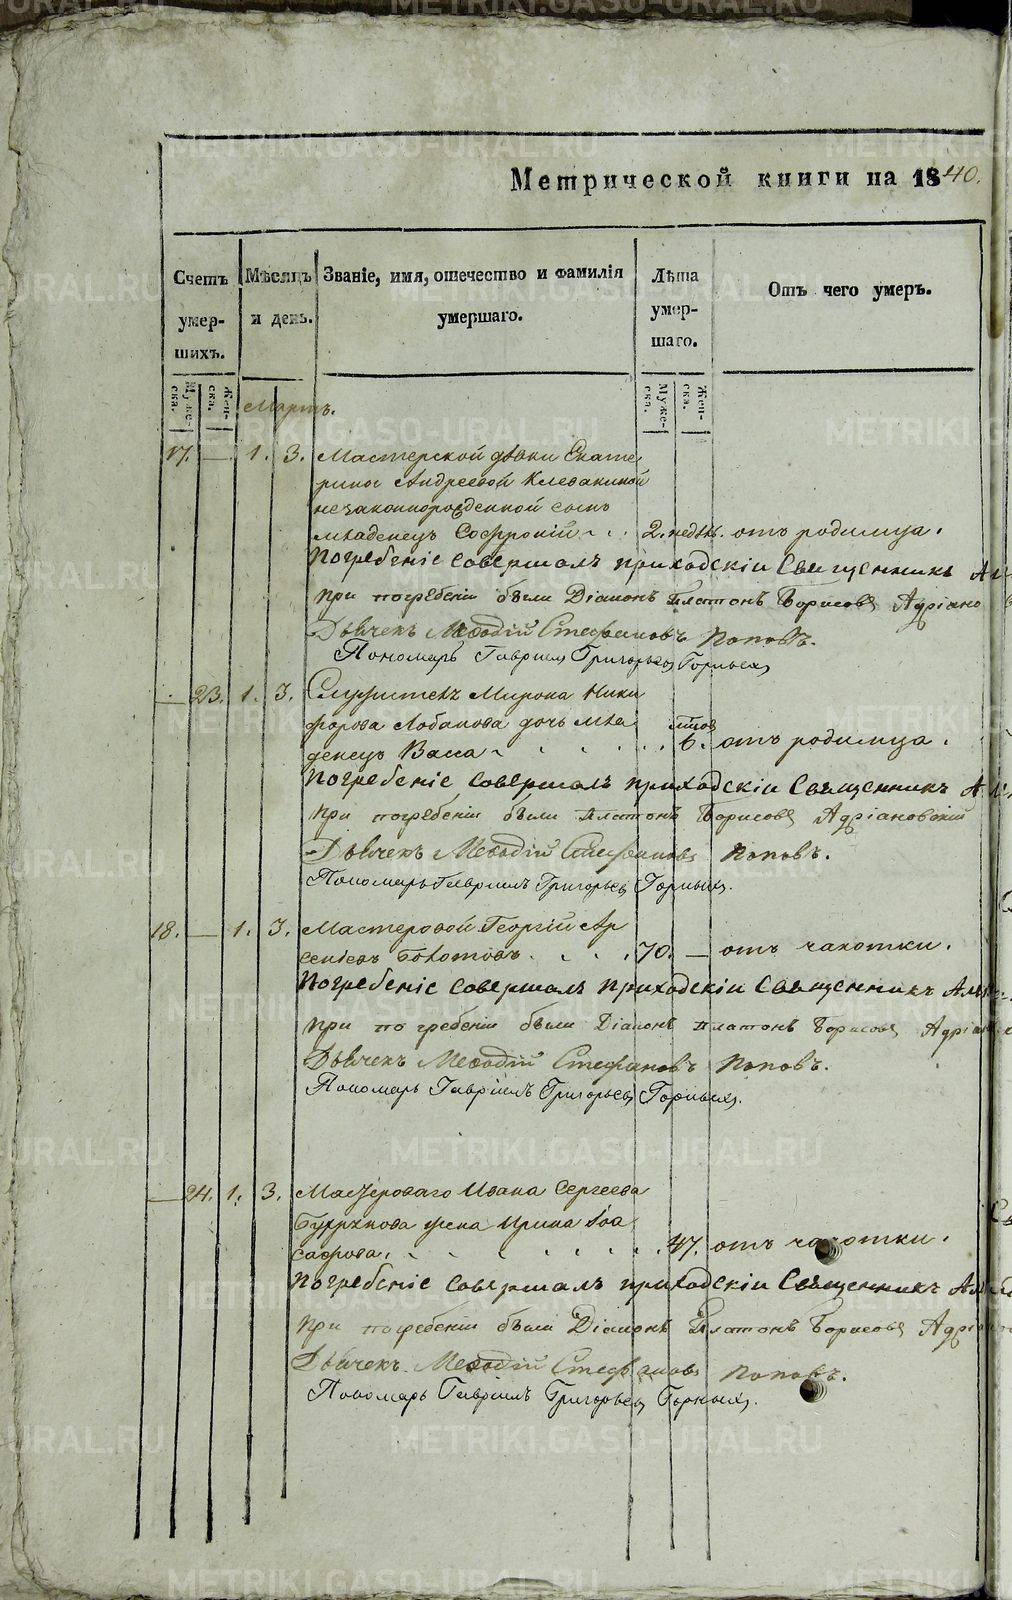 Метрической книги на 1840.
Счетъ умер-шихъ.
Мѣсяцъ и день.
Званіе, имя, отечество и фамилія умершаго.
Лѣта умер-шаго.
Отъ чего умеръ.
Муже-ска.
Жен-ска.
Муже-ска.
Жен-ска.
Мартъ.
17. — 1. 3. Мастерской дѣвки Екате
рины Андреевой Клевакиной
незаконнорожденной сынъ
младенецъ Софроній 2. недѣл. отъ родимца.
Погребеніе совершалъ приходскій Священникъ
при погребеніи были Діаконъ Платонъ Борисовъ Адріано
Дьячекъ Мефодій Стефановъ Поповъ.
Пономарь Гавріилъ Григорьевъ Горныхъ
— 23. 1. 3. Мирона Ники
форова Лобанова дочь мла
денецъ Васса 6. отъ родимца.
Погребеніе совершалъ приходскій Священникъ
при погребеніи были Платонъ Борисовъ Адріановскій
Дьячекъ Мефодій Стефановъ Поповъ.
Пономарь Гавріилъ Григорьевъ Горныхъ.
18. — 1. 3. Мастеровой Георгій Ар
сеніевъ Болотовъ 70. — отъ чахотки.
Погребеніе совершалъ приходскій Священникъ
при погребеніи были Діаконъ Платонъ Борисовъ
Дьячекъ Мефодій Стефановъ Поповъ.
Пономарь Гавріилъ Григорьевъ Горныхъ.
— 24. 1. 3. Мастероваго Ивана Сергеева
жена Ирина Іоа
сафова 47. отъ чахотки.
Погребеніе совершалъ приходскій Священникъ
при погребеніи были Діаконъ Платонъ Борисовъ
Дьячекъ Мефодій Стефановъ Поповъ.
Пономарь Гавріилъ Григорьевъ Горныхъ.
METRIKI.GASO-URAL.RU